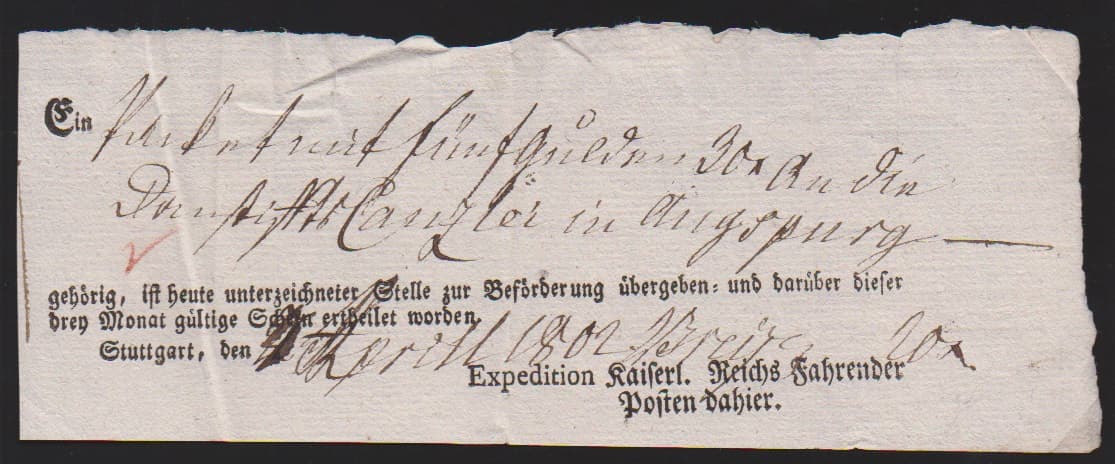 Ein Packet mit fünf Gulden 30x An die
Domstiffts Canzlei in Augspurg
gehörig, ist heute unterzeichneter Stelle zur Beförderung übergeben- und darüber dieser
drey Monat gültige Schein ertheilet worden.
Stuttgart, den Aprill 1802 20x
Expedition Kaiserl. Reichs Fahrender
Posten dahier.